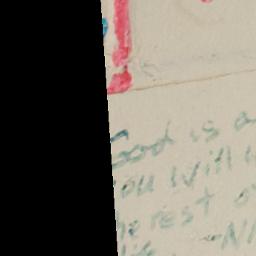 Good is a
you will
he rest o
life. -Ni